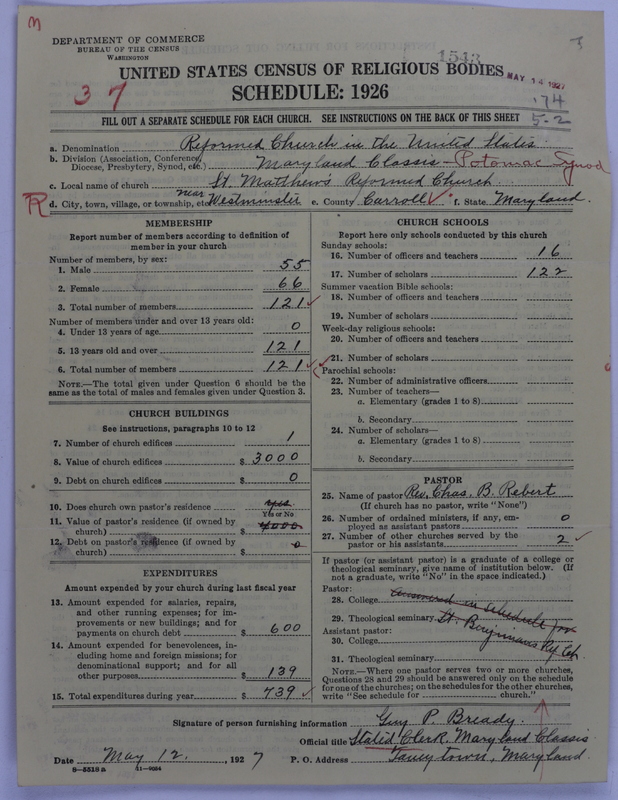 DEPARTMENT OF COMMERCE
BUREAU OF THE CENSUS
WASHINGTON
1543
MAY 14 1927
UNITED STATES CENSUS OF RELIGIOUS BODIES
37
SCHEDULE: 1926
'74
FILL OUT A SEPARATE SCHEDULE FOR EACH CHURCH. SEE INSTRUCTIONS ON THE BACK OF THIS SHEET
5-2
a. Denomination Reformed Church in the United States
b. Division (Association, Conference, Diocese, Presbytery, Synod, etc.) Maryland Classis - Potomac Synod
c. Local name of church St. Matthew's Reformed Church
d. City, town, village, or township, etc. near Westminster e. County Carroll f. State Maryland.
MEMBERSHIP
Report number of members according to definition of
member in your church
Number of members, by sex:
1. Male 55
2. Female 66
3. Total number of members 121
Number of members under and over 13 years old:
4. Under 13 years of age 0
5. 13 years old and over 121
6. Total number of members 121
NOTE.—The total given under Question 6 should be the
same as the total of males and females given under Question 3.
CHURCH BUILDINGS
See instructions, paragraphs 10 to 12
7. Number of church edifices 1
8. Value of church edifices $ 3000
9. Debt on church edifices $ 0
10. Does church own pastor's residence yes
Yes or No
11. Value of pastor's residence (if owned by
church) $ 4000
12. Debt on pastor's residence (if owned by
church) $ 0
EXPENDITURES
Amount expended by your church during last fiscal year
13. Amount expended for salaries, repairs,
and other running expenses; for im-
provements or new buildings; and for
payments on church debt $ 600
14. Amount expended for benevolences, in-
cluding home and foreign missions; for
denominational support; and for all
other purposes $ 139
15. Total expenditures during year $ 739
CHURCH SCHOOLS
Report here only schools conducted by this church
Sunday schools:
16. Number of officers and teachers 16
17. Number of scholars 122
Summer vacation Bible schools:
18. Number of officers and teachers
19. Number of scholars
Week-day religious schools:
20. Number of officers and teachers
21. Number of scholars
Parochial schools:
22. Number of administrative officers
23. Number of teachers—
a. Elementary (grades 1 to 8)
b. Secondary
24. Number of scholars—
a. Elementary (grades 1 to 8)
b. Secondary
PASTOR
25. Name of pastor Rev. Chas. B. Rebert
(If church has no pastor, write "None")
26. Number of ordained ministers, if any, em-
ployed as assistant pastors 0
27. Number of other churches served by the
pastor or his assistants 2
If pastor (or assistant pastor) is a graduate of a college or
theological seminary, give name of institution below. (If
not a graduate, write "No" in the space indicated.)
Pastor:
28. College Answered in schedule for
29. Theological seminary St. Benjamin's
Assistant pastor:
30. College
31. Theological seminary
NOTE.—Where one pastor serves two or more churches,
Questions 28 and 29 should be answered only on the schedule
for one of the churches; on the schedules for the other churches,
write "See schedule for church."
Signature of person furnishing information Guy P. Bready.
Official title Stated Clerk, Maryland Classis
Date May 12, 1927 P. O. Address Taneytown, Maryland.
8—5518 a 11—9084